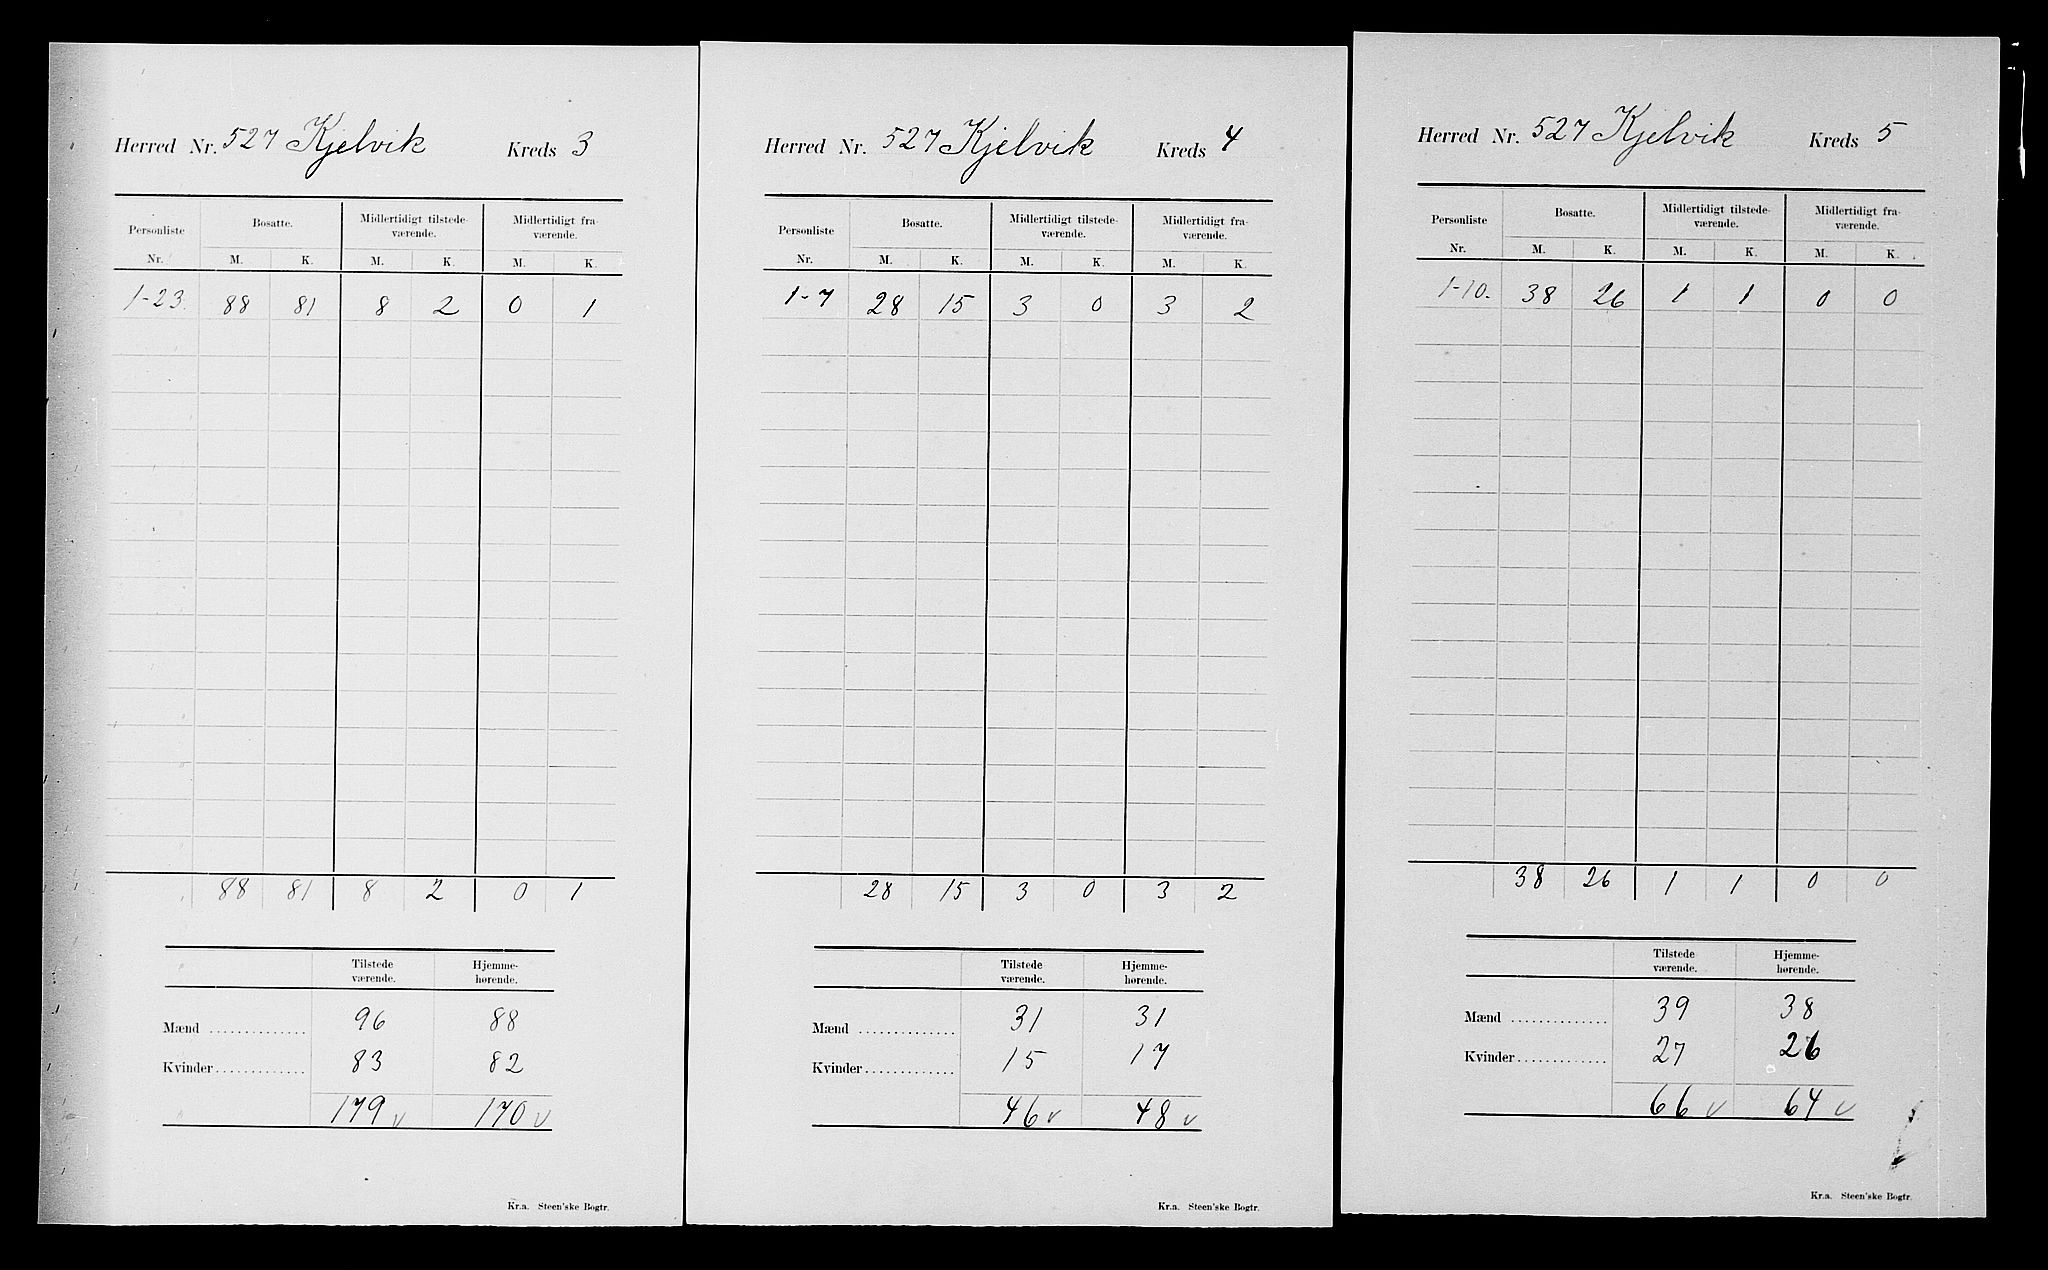 Herred Nr. 527 Kjelvik Kreds 3
Personliste Bosatte. Midlertidigt tilstede- Midlertidigt fra-
værende. værende.
Nr. M. K. M. K. M. K.
1-23. 88 81 8 2 0 1
88 81 8 2 0 1
Tilstede Hjemme-
værende. hørende.
Mænd .............. 96 88
Kvinder ............. 83 82
179 v 170 v
Kr.a. Steen'ske Bogtr.
Herred Nr. 527 Kjelvik Kreds 4
Personliste Bosatte. Midlertidigt tilstede- Midlertidigt fra-
værende. værende.
Nr. M. K. M. K. M. K.
1-7 28 15 3 0 3 2
28 15 3 0 3 2
Tilstede Hjemme-
værende. hørende.
Mænd .............. 31 31
Kvinder ............. 15 17
46 v 48 v
Kr.a. Steen'ske Bogtr.
Herred Nr. 527 Kjelvik Kreds 5
Personliste Bosatte. Midlertidigt tilstede- Midlertidigt fra-
værende. værende.
Nr. M. K. M. K. M. K.
1-10. 38 26 1 1 0 0
38 26 1 1 0 0
Tilstede Hjemme-
værende. hørende.
Mænd .............. 39 38
Kvinder ............. 27 26
66 v 64 v
Kr.a. Steen'ske Bogtr.